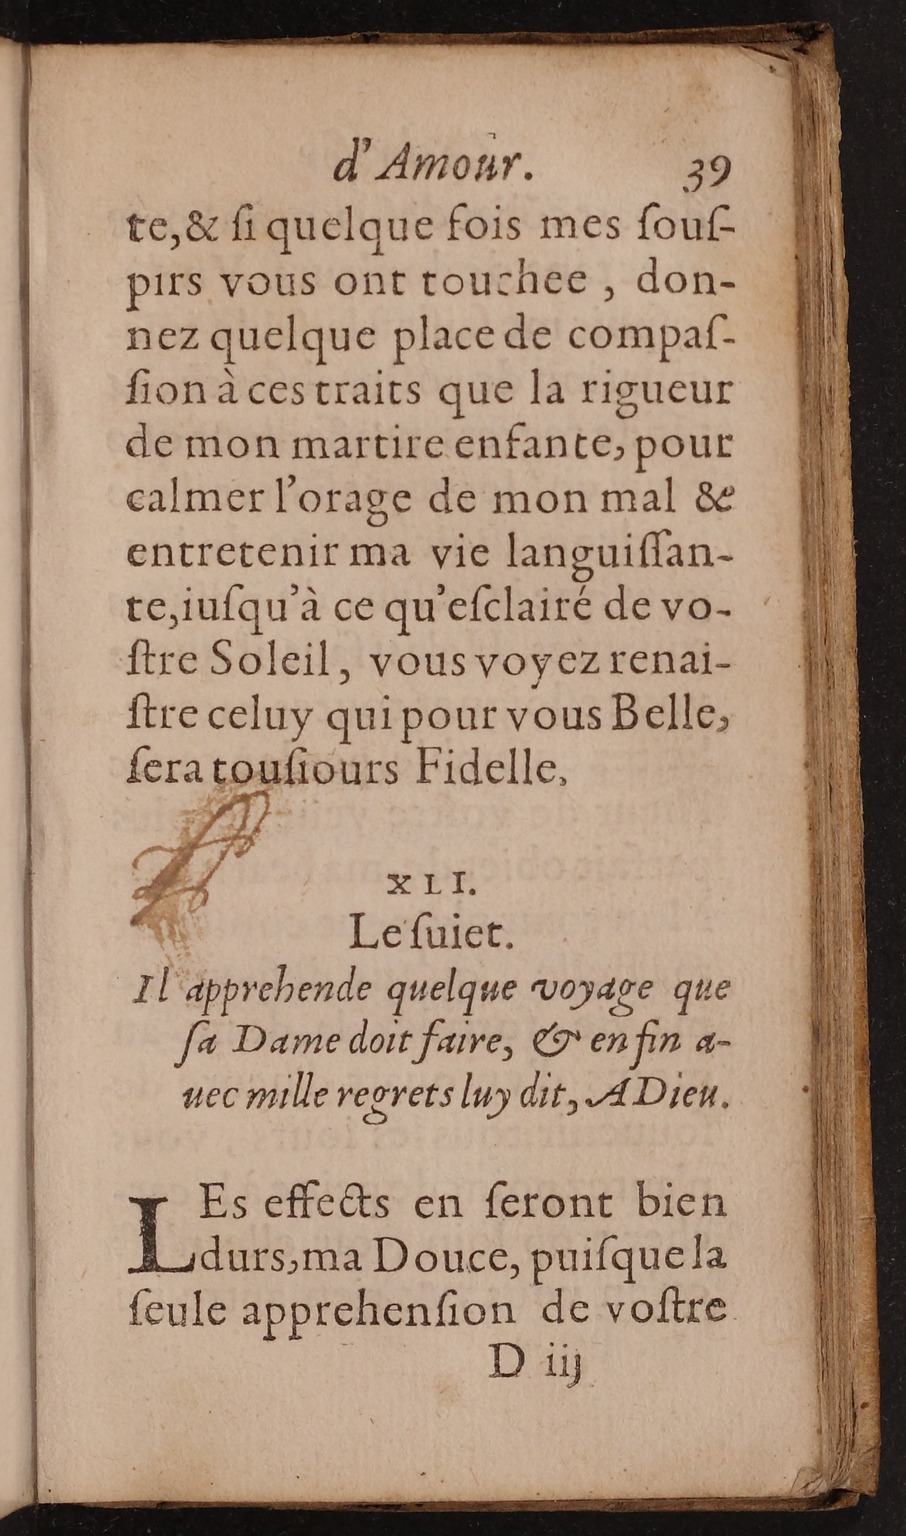 d'Amour. 39
te,& ſi quelque fois mes ſouſ-
pirs vous ont touchee , don-
nez quelque place de compaſ-
ſion à ces traits que la rigueur
de mon martire enfante, pour
calmer l'orage de mon mal &
entretenir ma vie languiſſan-
te,iuſqu'à ce qu'eſclairé de vo-
ſtre Soleil, vous voyez renai-
ſtre celuy qui pour vous Belle,
ſera touſiours Fidelle,
XLI.
Le ſuiet.
Il apprehende quelque voyage que
ſa Dame doit faire, & enfin a-
uec mille regrets luy dit, A Dieu.
LEs effects en ſeront bien
durs,ma Douce, puiſque la
ſeule apprehenſion de voſtre
D iij